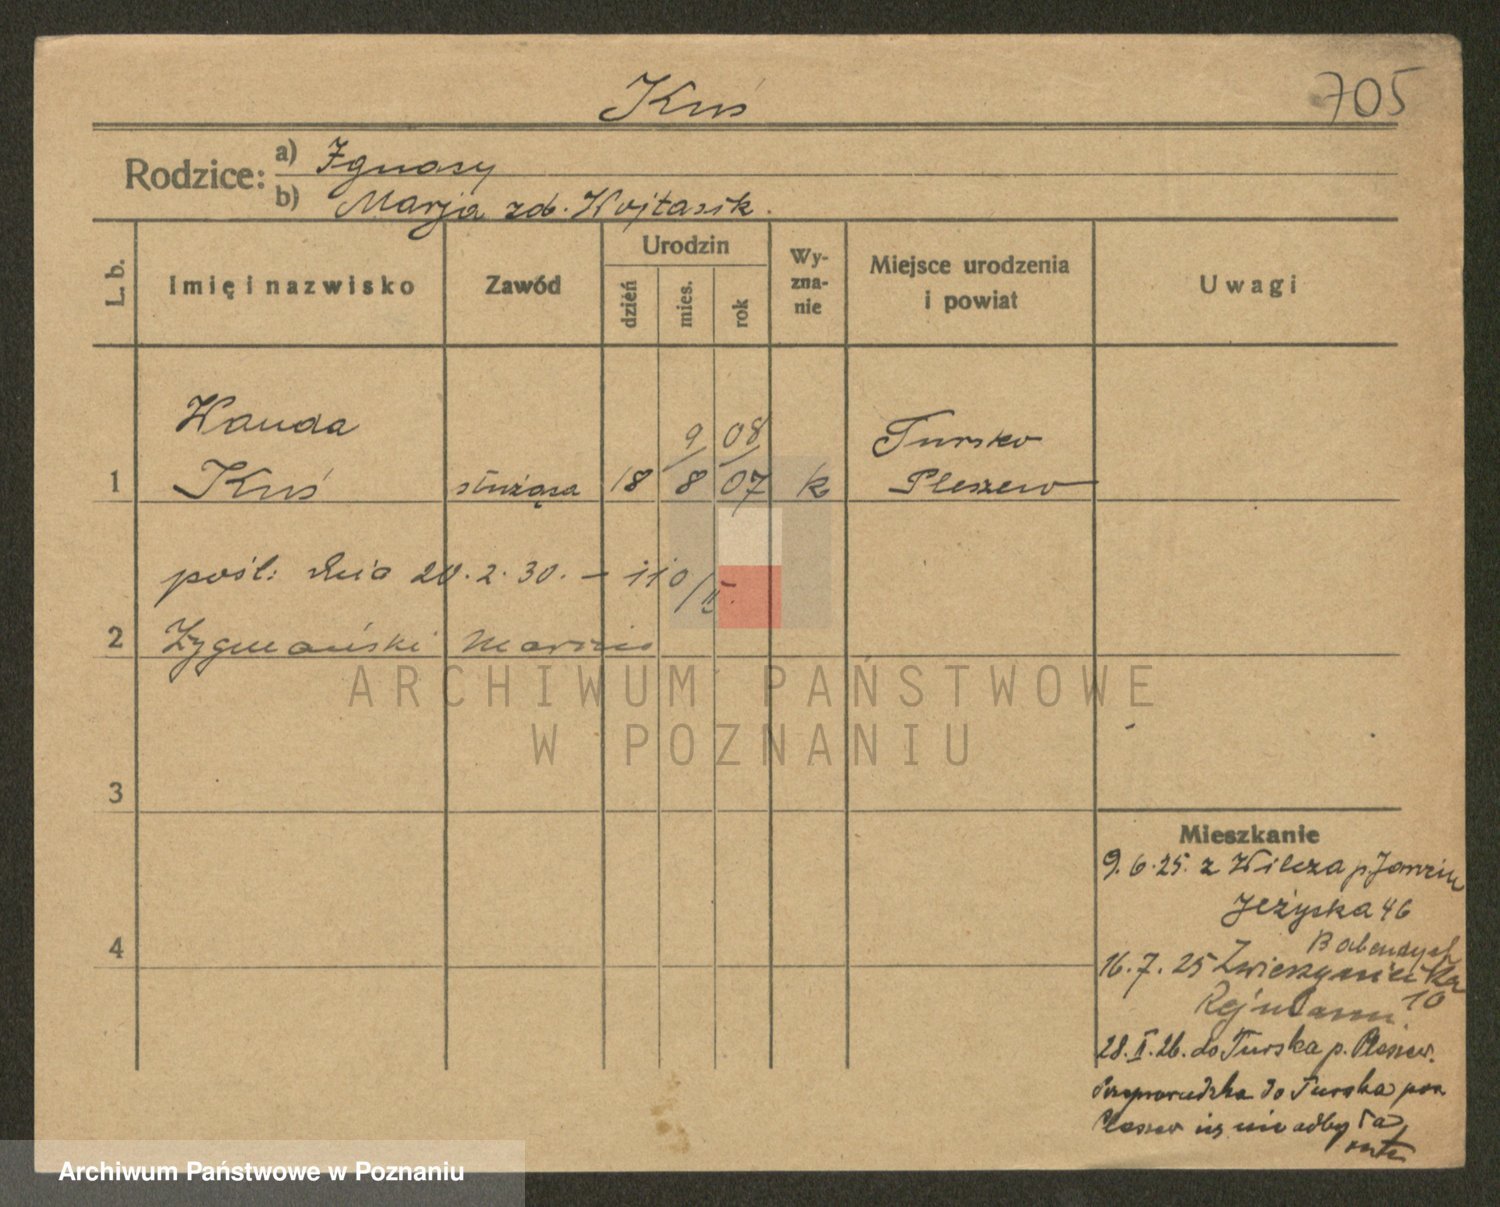 Kuś
705
Rodzice: a) Ignacy
b) Marja zd. Wojtasik.
L. b.
Imię i nazwisko
Zawód
Urodzin
dzień
mies.
rok
Wy-
zna-
nie
Miejsce urodzenia
i powiat
Uwagi
Wanda
9 08
Tursko
1 Kuś służąca 18 8 07 k Pleszew
pośl. dnia 20.2.30. – 110/II.
2 Zygmański Marcin
ARCHIWUM PAŃSTWOWE
W POZNANIU
3
Mieszkanie
9.6.25. z Wilcza p. Jarocin
Jeżyska 46
4
16.7.25 Zwierzyniecka
10
28.II.26. do Turska p. Pleszew.
do Turska pow
Pleszew się nie odbyła
Archiwum Państwowe w Poznaniu